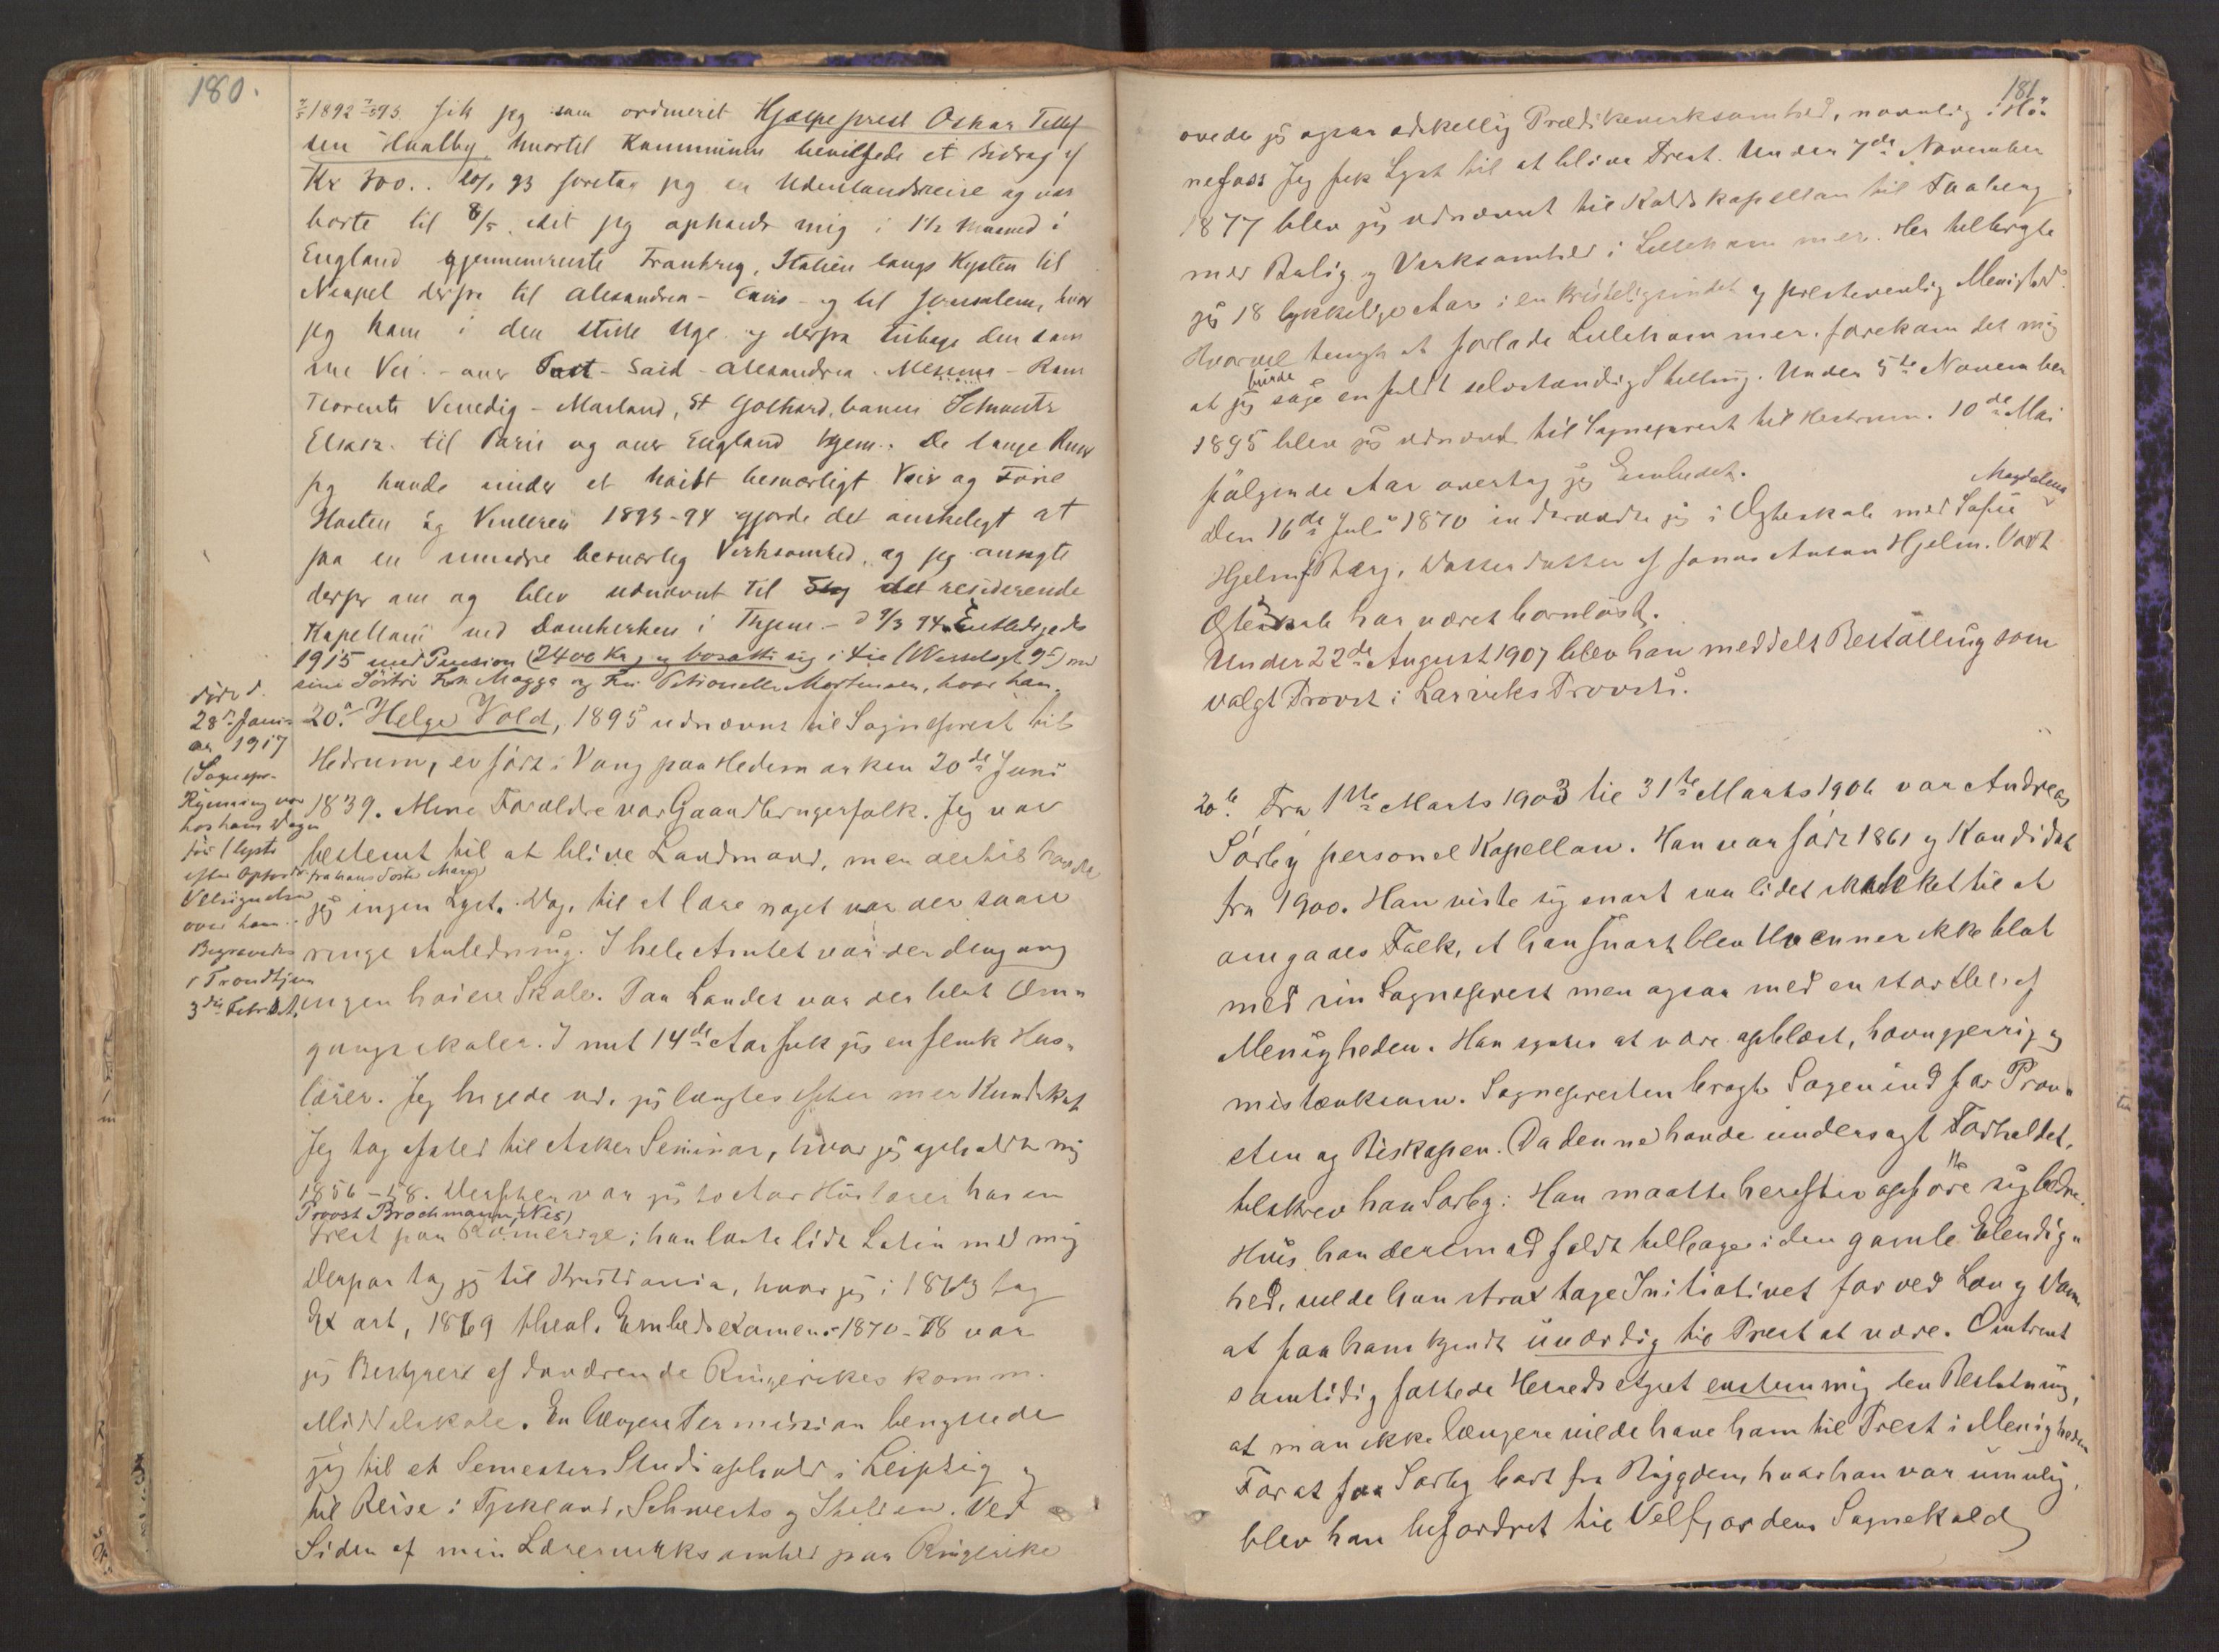 180.
1892 93. fik jeg som ordineret Hjælpeprest Oskar Tellef
sen Hvalby, hvortil Kommunen bevilgede et Bidrag af
Kr 300.. 93 foretog jeg en Udenlandsreise og var
borte til 8/5. idet jeg opholdt mig i 1½ Maaned i
England gjennemreiste Frankrig, Italien langs Kysten til
Neapel derfra til Alexandria - Cairo - og til Jerusalem, hvor
jeg kom i den stille Uge og derfra tilbage den sam
me Vei. - over Port - Said - Alexandria - Messina - Rom
Florents Venedig - Mailand, St Gothard, banen Schweitz
Elsas. til Paris og over England hjem. De lange
jeg havde under et høist besværligt Veir og Føre
Høsten og Vinteren 1893-94 gjorde det ønskeligt at
faa en mindre besværlig Virksomhed, og jeg ansøgte
derfor om og blev udnævnt til residerende
Kapellan ved Domkirken i Thjem - d 9/3 94. Entledigedes
1915 med Pension (2400 Kr) og bosatte sig i (Wesselsgt 9) med
sine Søstre Frk Magga og Fru Petronelle Mortensen, hvor han
døde d.
28de Janu-
ar 1917
(Sognepr.
Rynning var
hos ham Dagen
før (lyste
efter Opfordr. fra hans Søster Marg)
Velsignelsen
over ham..
Begravedes
i Trondhjem
3die Febr.
20.a Helge Vold, 1895 udnævnt til Sogneprest til
Hedrum, er født i Vang paa Hedemarken 20de Juni
1839. Mine Forældre var Gaardbrugerfolk. Jeg var
bestemt til at blive Landmand, men dertil havde
jeg ingen Lyst. Dog, til at lære noget var der saare
ringe Anledning. I hele Amtet var der dengang
ingen høiere Skole. Paa Landet var der blot Om-
gangsskoler. I mit 14de Aar fik jeg en flink Hus-
lærer. Jeg higede ud, jeg længtes efter mer Kundskab
Jeg tog afsted til Asker Seminar, hvor jeg opholdt mig
1856-58. Derefter var jeg to Aar Huslærer hos en
Provst Brochmann, (Nes)
Prest paa Romerige; han læste lidt Latin med mig
Derpaa tog jeg til Kristiania, hvor jeg i 1863 tog
Ex art, 1869 theol. Embedsexamen. 1870-78 var
jeg Bestyrer af daværende Ringerikes komm.
Middelskole. En længere Permission benyttede
jeg til et Semesters Studieophold i Leipzig og
til Reise i Tyskland, Schweits og Italien. Ved
Siden af min Lærervirksomhed paa Ringerike
181
øvede jeg ogsaa adskellig Prædikenvirksomhed, navnlig i Høn-
nefoss Jeg fik Lyst til at blive Prest. Under 7de November
1877 blev jeg udnævnt til Kaldskapellan til Faaberg
med Bolig og Virksomhed i Lillehammer. Her tilbragte
jeg 18 lykkelige Aar i en kristeligsindet og prestevenlig Menighed.
Hvorvel tungt at forlade Lillehammer. forekom det mig
burde
at jeg søge en fuldt selvstændig Stilling. Under 5te November
1895 blev jeg udnævnt til Sogneprest til Hedrum. 10de Mai
følgende Aar overtog jeg Embedet.
Magdalena
Den 16de Juli 1870 indtraadte jeg i Ægteskab med Sofie
Hjelm f Berg, Datterdatter af Jonas Anton Hjelm. Vort
Ægteskab har været barnløst.
Under 22de August 1907 blev han meddelt Bestalling som
valgt Provst i Larviks Provsti.
20b. Fra 1ste Marts 1903 til 31te Marts 1906 var Andreas
Sørby personel Kapellan. Han var født 1861 og Kandidat
fra 1900. Han viste sig snart saa lidet skikket til at
omgaaes Folk, at han snart blev Uvenner ikke blot
med sin Sogneprest men ogsaa med en stor Del af
Menigheden. Han syntes at være opblæst, hævngjerrig og
mistænksom. Sognepresten bragte Sagen ind for Prov-
sten og Biskopen. Da denne havde undersøgt Forholdet,
tilskrev han Sørby: Han maatte herefter opføre sig bedre.
Hvis han derimod faldt tilbage i den gamle Elendig-
hed, vilde han strax tage Initiativet for ved Lov og Dom
at faa ham kjendt uværdig til Prest at være. Omtrent
samtidig fattede Herredsstyret enstemmig den Beslutning,
at man ikke længere vilde have ham til Prest i Menigheden
For at faa Sørby bort fra Bygden, hvor han var umulig,
blev han befordret til Velfjordens Sognekald